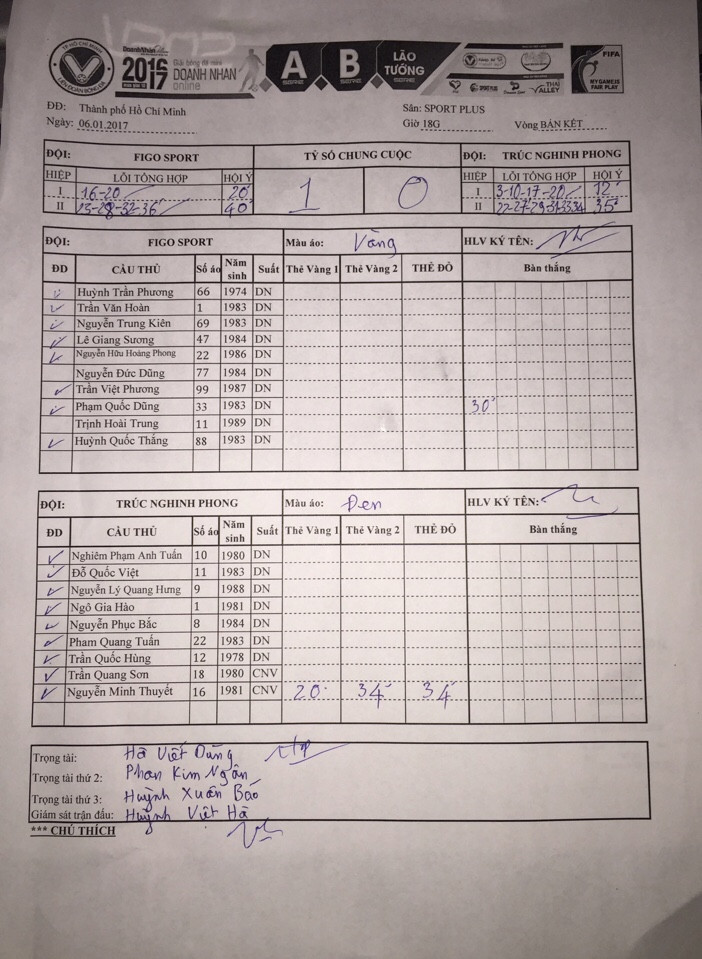 TP HỒ CHÍ MINH
LIÊN ĐOÀN BÓNG ĐÁ
DoanhNhân
2016
2017
Giải bóng đá mini
DOANH NHÂN
online
A
B
LÃO TƯỚNG
SPORT PLUS
THAI VALLEY
FIFA
MY GAME IS FAIR PLAY
ĐĐ: Thành phố Hồ Chí Minh Sân: SPORT PLUS
Ngày: 06.01.2017 Giờ 18G Vòng BÁN KẾT
ĐỘI: FIGO SPORT TỶ SỐ CHUNG CUỘC ĐỘI: TRÚC NGHINH PHONG
HIỆP LỖI TỔNG HỢP HỘI Ý 1 0 HIỆP LỖI TỔNG HỢP HỘI Ý
I 16-20 20' I 3-10-17-20 12'
II 23-28-32-36 40' II 22-27-29-31-33-34 35'
ĐỘI: FIGO SPORT Màu áo: Vàng HLV KÝ TÊN:
ĐD CẦU THỦ Số áo Năm sinh Suất Thẻ Vàng 1 Thẻ Vàng 2 THẺ ĐỎ Bàn thắng
Huỳnh Trần Phương 66 1974 DN
Trần Văn Hoàn 1 1983 DN
Nguyễn Trung Kiên 69 1983 DN
Lê Giang Sương 47 1984 DN
Nguyễn Hữu Hoàng Phong 22 1986 DN
Nguyễn Đức Dũng 77 1984 DN
Trần Việt Phương 99 1987 DN
Phạm Quốc Dũng 33 1983 DN 30'
Trịnh Hoài Trung 11 1989 DN
Huỳnh Quốc Thắng 88 1983 DN
ĐỘI: TRÚC NGHINH PHONG Màu áo: Đen HLV KÝ TÊN:
ĐD CẦU THỦ Số áo Năm sinh Suất Thẻ Vàng 1 Thẻ Vàng 2 THẺ ĐỎ Bàn thắng
Nghiêm Phạm Anh Tuấn 10 1980 DN
Đỗ Quốc Việt 11 1983 DN
Nguyễn Lý Quang Hưng 9 1988 DN
Ngô Gia Hào 1 1981 DN
Nguyễn Phục Bắc 8 1984 DN
Pham Quang Tuấn 22 1983 DN
Trần Quốc Hùng 12 1978 DN
Trần Quang Sơn 18 1980 CNV
Nguyễn Minh Thuyết 16 1981 CNV 20' 34' 34'
Trọng tài: Hà Viết Dũng
Trọng tài thứ 2: Phan Kim Ngân
Trọng tài thứ 3: Huỳnh Xuân Bảo
Giám sát trận đấu: Huỳnh Việt Hà
*** CHÚ THÍCH